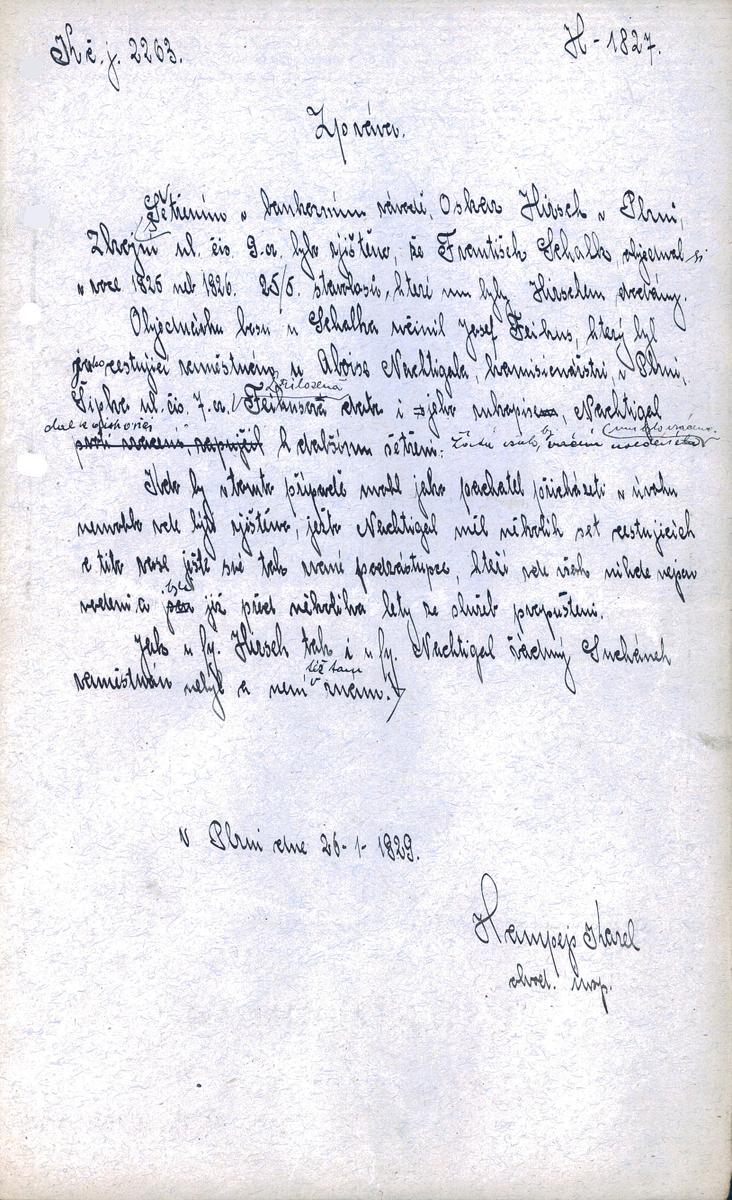 K č. j. 2263.
H - 1827.
Zpráva.
Šetřením v bankovním závodě, Oskar Hirsch v Plzni,
Zbrojní ul. čís. 9.a. bylo zjištěno, že František Schalk, objednal si
v roce 1825 neb 1826. 25/5. stavolosů, které mu byly Hirschem dodány.
Objednávku losu u Schalka učinil Josef Feikus, který byl
jako cestující zaměstnán u Aloise Nachtigala, komisionářství, v Plzni,
Šípka ul. čís. 7.a. Přiložená Feikusova data i jeho rukopis, Nachtigal
dal k disposici
k dalšímu šetření.
Kdo by v tomto případě mohl jako pachatel přicházeti v úvahu
nemohlo zde býti zjištěno, ježto Nachtigal měl několik set cestujících
a tito zase ještě své tak zvané podzástupce, kteří zde však nikde nejsou
vedeni a byli již před několika lety ze služeb propuštěni.
Jak u fy. Hirsch tak i u fy. Nachtigal žádný Suchánek
zaměstnán nebyl a není též tam znám.
V Plzni dne 26-1-1829.
Hampejs Karel
obvod. insp.